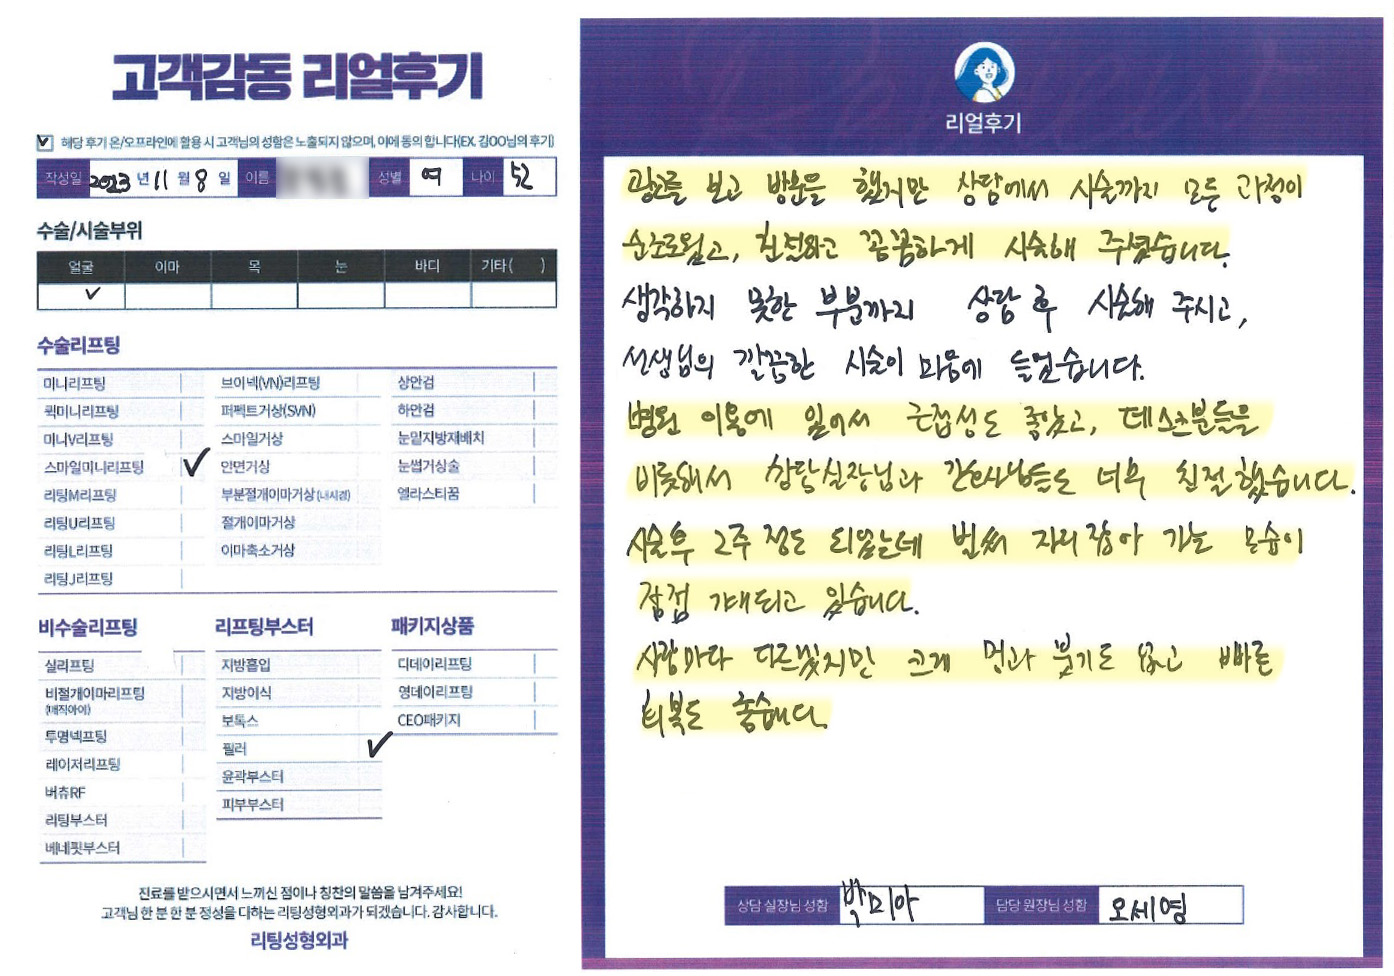 고객감동 리얼후기
해당 후기 온/오프라인에 활용 시 고객님의 성함은 노출되지 않으며, 이에 동의 합니다(EX. 김OO님의 후기)
작성일 2023 년 11 월 8 일 이름 성별 여 나이 52
수술/시술부위
얼굴 이마 목 눈 바디 기타( )
수술리프팅
미니리프팅 브이넥(VN)리프팅 상안검
퀵미니리프팅 퍼펙트거상(SVN) 하안검
미니V리프팅 스마일거상 눈밑지방재배치
스마일미니리프팅 안면거상 눈썹거상술
리팅M리프팅 부분절개이마거상(내시경) 엘라스티꿈
리팅U리프팅 절개이마거상
리팅L리프팅 이마축소거상
리팅J리프팅
비수술리프팅 리프팅부스터 패키지상품
실리프팅 지방흡입 디데이리프팅
비절개이마리프팅 지방이식 영데이리프팅
(매직아이)
투명넥프팅 보톡스 CEO패키지
레이저리프팅 필러
버츄RF 윤곽부스터
리팅부스터 피부부스터
베네핏부스터
진료를 받으시면서 느끼신 점이나 칭찬의 말씀을 남겨주세요!
고객님 한 분 한 분 정성을 다하는 리팅성형외과가 되겠습니다. 감사합니다.
리팅성형외과
리얼후기
광고를 보고 방문을 했지만 상담에서 시술까지 모든 과정이
순조로웠고, 친절하고 꼼꼼하게 시술해 주셨습니다.
생각하지 못한 부분까지 상담 후 시술해 주시고,
선생님의 깔끔한 시술이 마음에 들었습니다.
병원 이용에 있어서 근접성도 좋았고, 데스크분들을
비롯해서 상담실장님과 간호사님들도 너무 친절했습니다.
시술후 2주 정도 되었는데 벌써 자리 잡아 가는 모습이
점점 기대되고 있습니다.
사람마다 다르겠지만 크게 멍과 붓기도 않고 빠른
회복도 좋습니다.
상담 실장님 성함 박미아 담당 원장님 성함 오세영